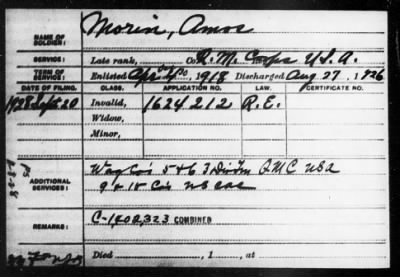 NAME OF SOLDIER: Morin, Amos
SERVICE: Late rank, Co. Q. M. Corps U.S.A.
TERM OF SERVICE: Enlisted Apr 4, 1918 Discharged Aug 27, 1926
DATE OF FILING. CLASS. APPLICATION NO. LAW. CERTIFICATE NO.
1928 Sept. 20 Invalid, 1624212 R.E.
Widow,
Minor,
ADDITIONAL SERVICES: Wag Co's 5 & 6 3 Div Tn QMC USA
9 & 18 Co's US CAC
REMARKS: C-1400,323 COMBINED
Died , 1 , at